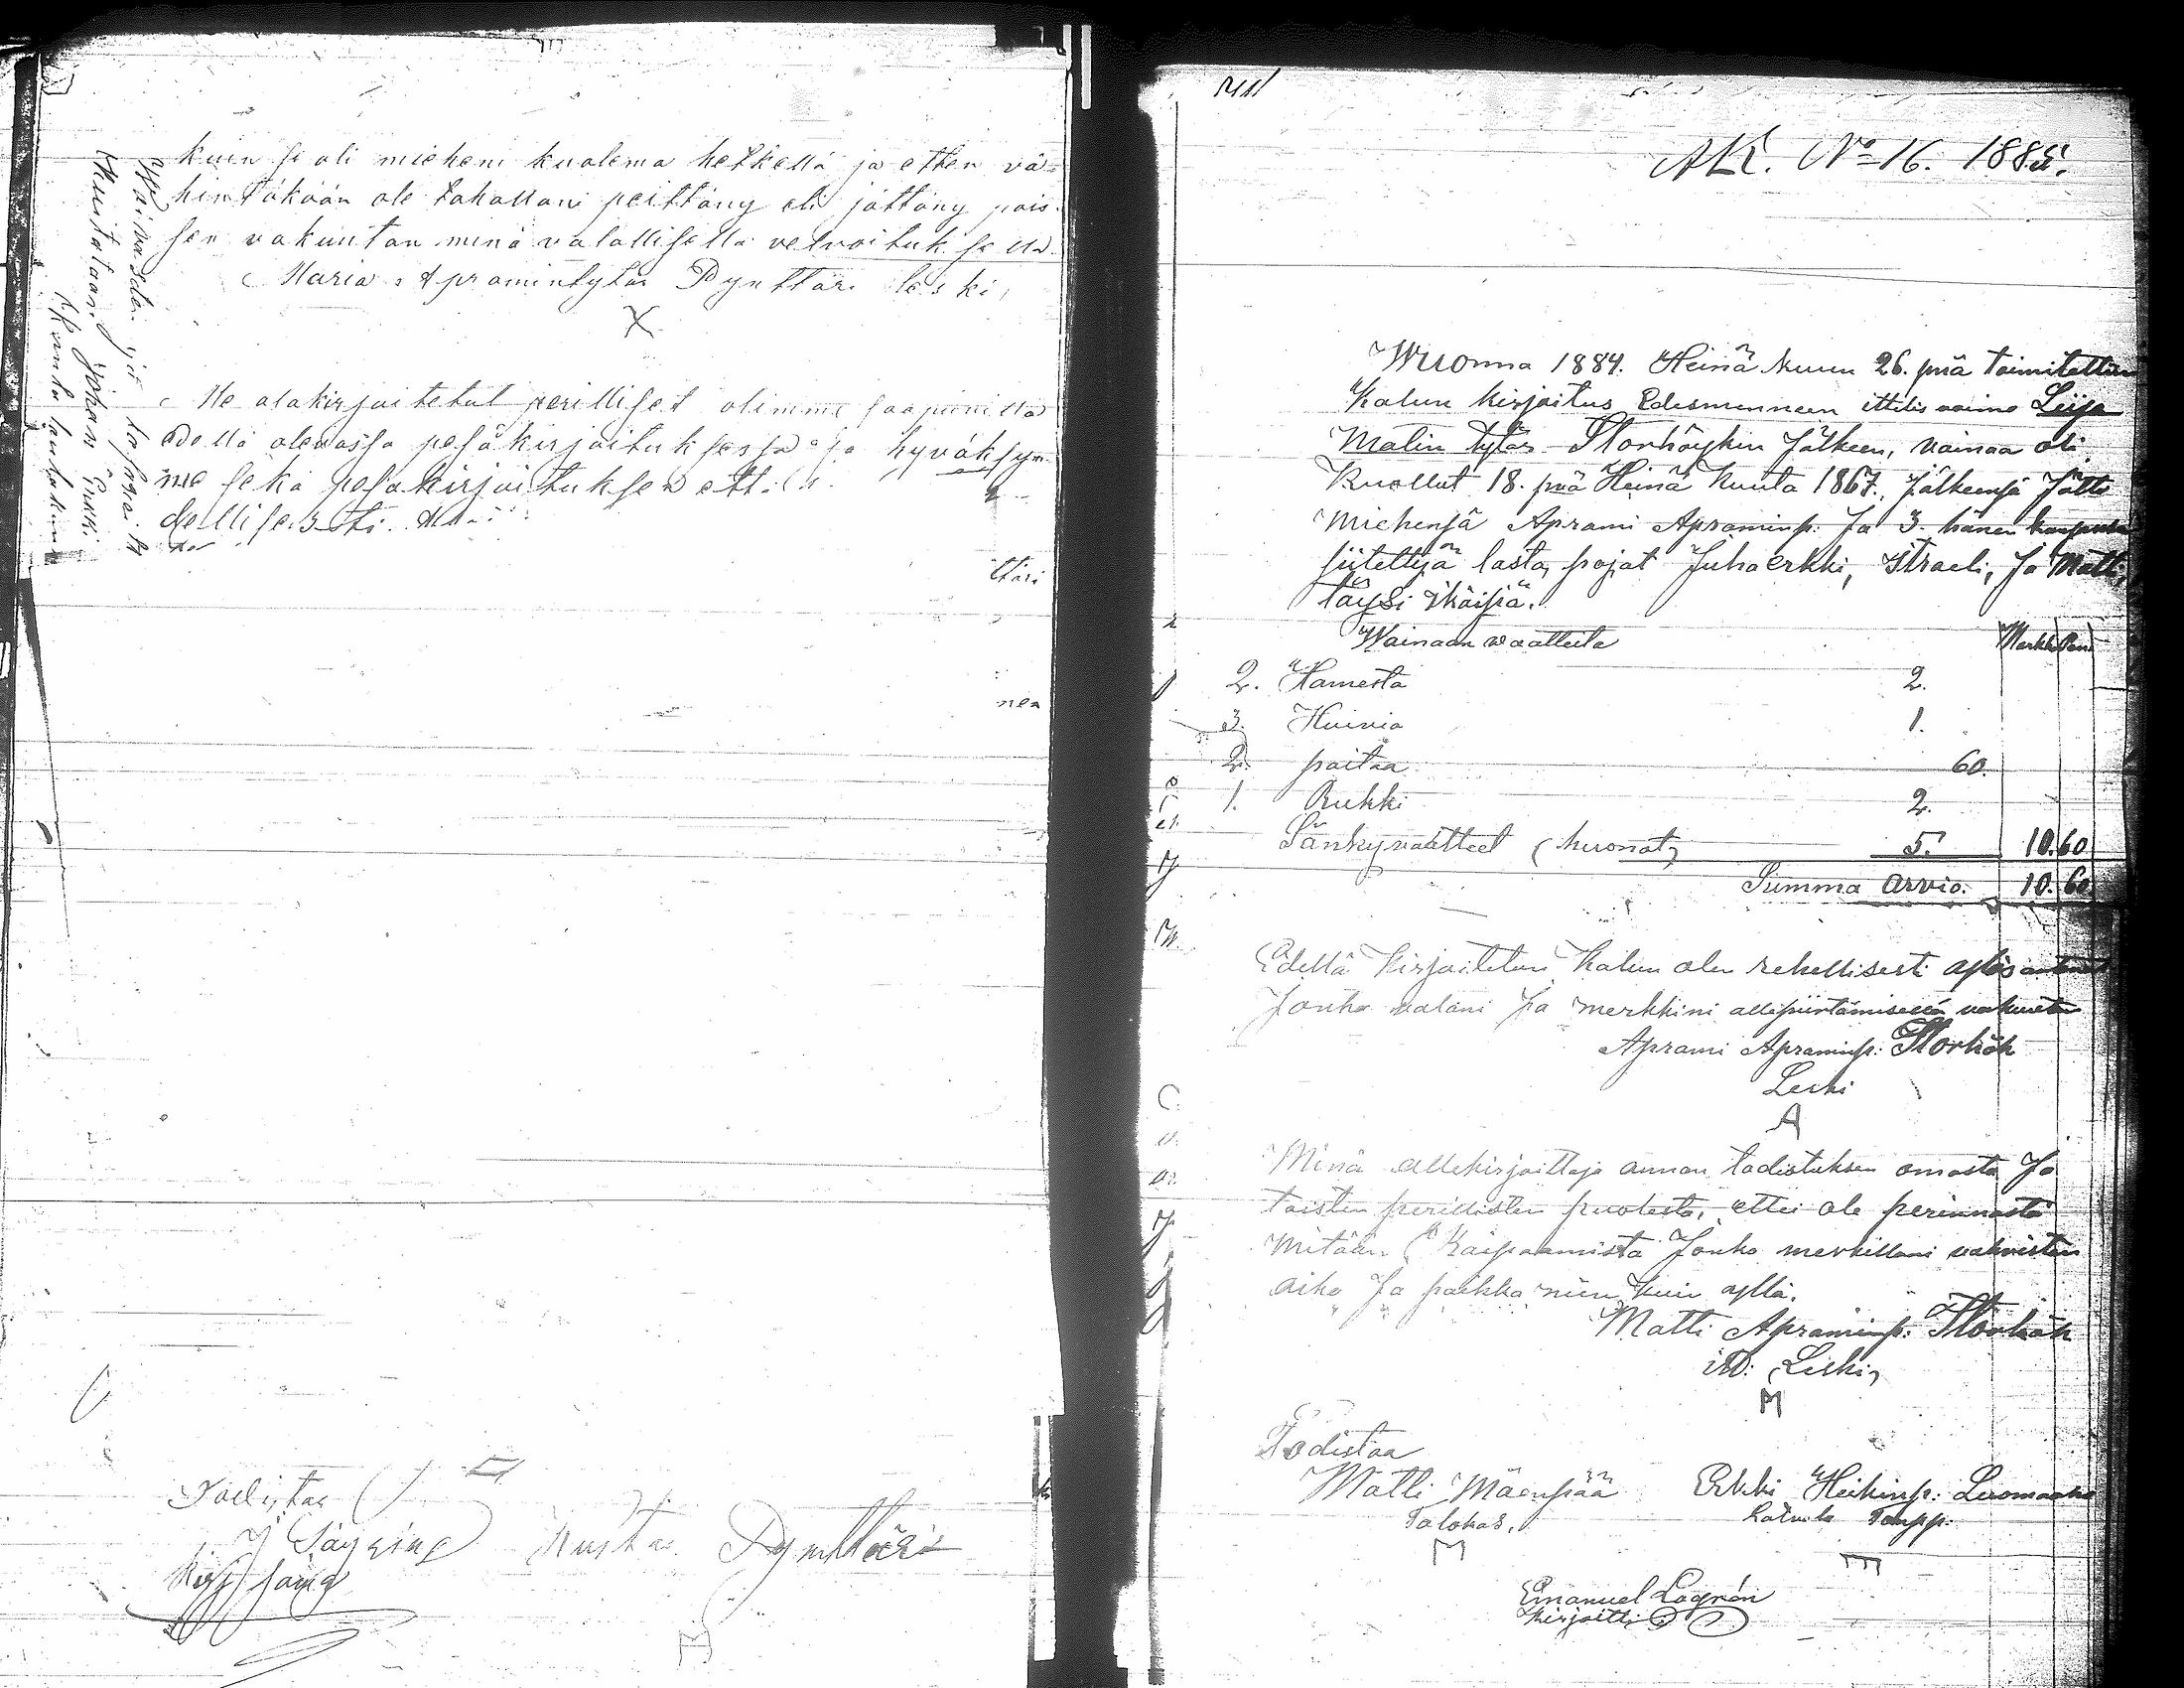 kuin se oli mieheni kualema hetkellä ja etten vä-
hintäkään ole tahallani peittäny eli jättäny pois
sen vakuutan minä valallisella velvoituksella.
Maria Apramintytär Pynttäri leski,
X
Me alakirjoitetut perilliset olimme saapuvilla
edellä olevassa pesäkirjoituksessa ja hyväksym-
me sekä pesäkirjoituksen
ttäri
nen
Todistaa
Kustaa Pynttäri
741
AK. No 16. 1885.
Wuonna 1884. Heinä kuun 26. pnä toimitettiin
Kalun kirjoitus Edesmenneen ittelis vaimo Liisa
Matin tytär Storhöykin Jälkeen, vainaa oli
Kuollut 18. pnä Heinä Kuuta 1867. Jälkeensä Jätti
Miehensä Aprami Apraminp. Ja 3. hänen kanssa
siitettyä lasta, pojat Juhaerkki, Israeli, Ja Matti,
täysi ikäisiä.
Wainaan vaatteita Markk Pen
2. Hamesta 2.
3. Huivia 1.
2. paitaa 60.
1. Rukki 2.
Sänkyvaatteet (huonot) 5. 10.60
Summa arvio. 10.60.
Edellä kirjoitetun Kalun olen rehellisesti ylösantanut
Jonka valani Ja merkkini allepiirtämisellä vakuutan
Aprami Apraminp: Storhök
Leski
A
Minä allekirjoittaja annan todistuksen omasta Ja
toisten perillisten puolesta, ettei ole perinnöstä
mitään Kaipaamista Jonka merkilläni vahvistan
aika Ja paikka niin kuin yllä.
Matti Apraminp: Storhök
Leski,
M
Todistaa
Matti Mäenpää Erkki Heikinp: Luomanen
Talokas. Torpp.
M
Emanuel Lågrén
kirjoitti